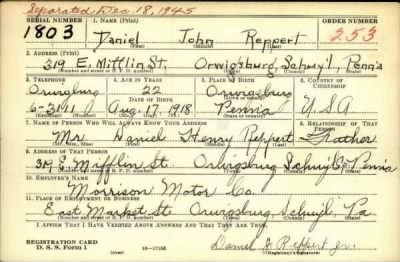 Separated Dec 18, 1945
SERIAL NUMBER 1. NAME (Print) ORDER NUMBER
1803 Daniel John Reppert 253
(First) (Middle) (Last)
2. ADDRESS (Print)
319 E. Mifflin St. Orwigsburg, Schuy'l, Penn'a
(Number and street or R. F. D. number) (Town) (County) (State)
3. TELEPHONE 4. AGE IN YEARS 5. PLACE OF BIRTH 6. COUNTRY OF CITIZENSHIP
Orwigsburg 22 Orwigsburg
DATE OF BIRTH (Town or county)
6-31-11 Aug. 17 1918 Penn'a U.S.A
(Exchange) (Number) (Mo.) (Day) (Yr.) (State or country)
7. NAME OF PERSON WHO WILL ALWAYS KNOW YOUR ADDRESS 8. RELATIONSHIP OF THAT PERSON
Mr. Daniel Henry Reppert Father
(Mr., Mrs., Miss) (First) (Middle) (Last)
9. ADDRESS OF THAT PERSON
319 E. Mifflin St. Orwigsburg Schuy'l Co Penn'a
(Number and street or R. F. D. number) (Town) (County) (State)
10. EMPLOYER'S NAME
Morrison Motor Co.
11. PLACE OF EMPLOYMENT OR BUSINESS
East Market St. Orwigsburg Schuyl. Pa.
(Number and street or R. F. D. number) (Town) (County) (State)
I AFFIRM THAT I HAVE VERIFIED ABOVE ANSWERS AND THAT THEY ARE TRUE.
REGISTRATION CARD
D. S. S. Form 1 (over) 16-17105 Daniel J. Reppert Jr.
(Registrant's signature)